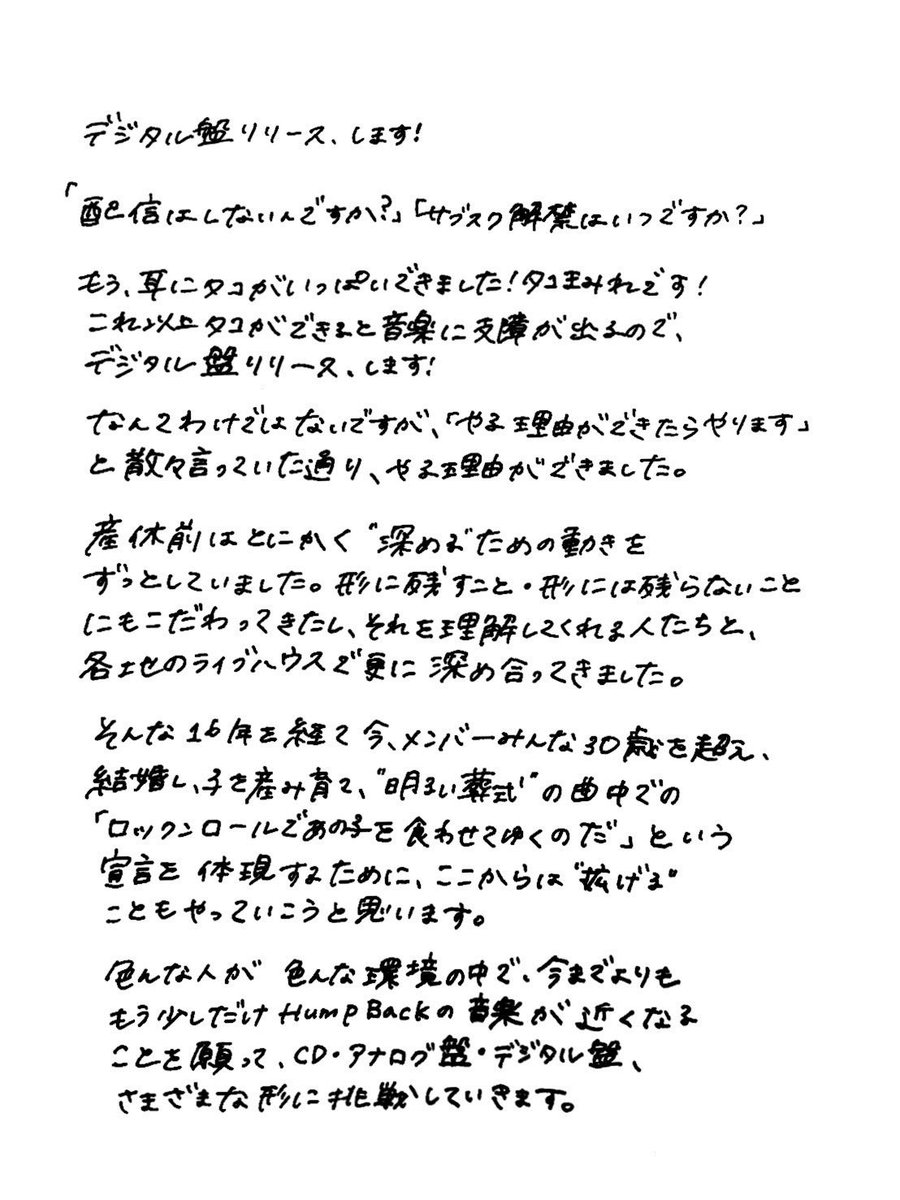 デジタル盤リリース、します!
「配信はしないんですか?」「サブスク解禁はいつですか?」
もう、耳にタコがいっぱいできました!タコまみれです!
これ以上タコができると音楽に支障が出るので、
デジタル盤リリース、します!
なんてわけではないですが、「やる理由ができたらやります」
と散々言っていた通り、やる理由ができました。
産休前はとにかく"深める"ための動きを
ずっとしていました。形に残すこと・形には残らないこと
にもこだわってきたし、それを理解してくれる人たちと、
各土地のライブハウスで更に深め合ってきました。
そんな16年を経て今、メンバーみんな30歳を超え、
結婚し、子を産み育て、"明るい葬式"の曲中での
「ロックンロールであの子を食わせてゆくのだ」という
宣言を体現するために、ここからは"拡げる"
こともやっていこうと思います。
色んな人が色んな環境の中で、今までよりも
もう少しだけHump Backの音楽が近くなる
ことを願って、CD・アナログ盤・デジタル盤、
さまざまな形に挑戦していきます。